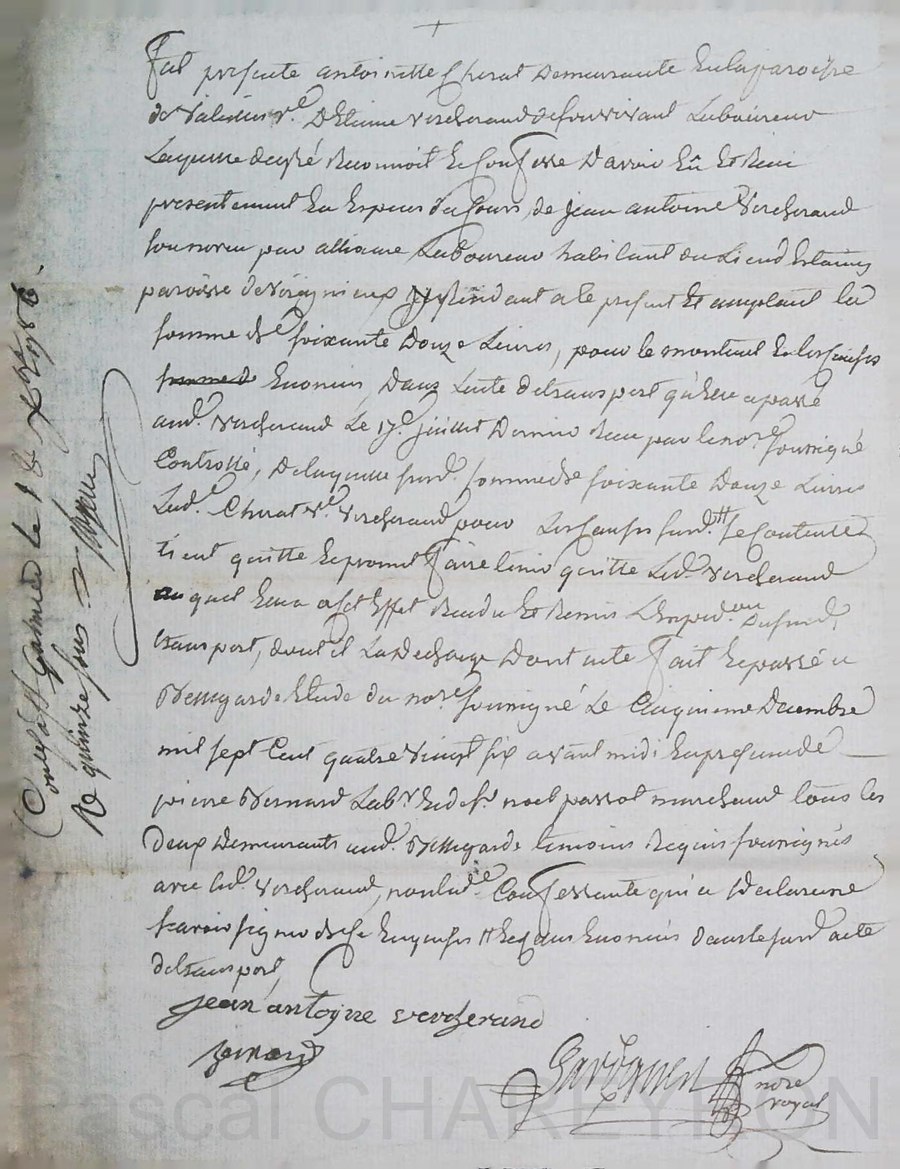 Fut presente antoinette Cherat Demeurante En la paroisse
de Valeilles v.e D'Etienne vercherand de son vivant Laboureur
Laquelle de gré Reconnoit Et Confesse D'avoir Eû Et Receu
presentement En Especes du Cours, de jean antoine Vercherand
son neveu par alliance Laboureur habitant du Lieu d'
paroisse de Virignieux icy present Et acceptant la
somme de soixante Douze Livres, pour le montant Et les causes
somme de Enoncées, Dans L'acte de transport qu'elle a passé
aud. Vercherand Le 17.e juillet Dernier Receu par le no.re soussigné
Controllé, De laquelle surd. somme de soixante Douze Livres
Lad. Cherat v.e Vercherand pour Les Causes surd.tes se Contente
tient quitte Et promet faire tenir quitte Led. Vercherand
auquel Elle a a Cet Effet Rendu Et Remis L'Exped.on Du surd.
transport, dont il La Decharge Dont acte fait Et passé a
Bellegarde Etude du no.re soussigné Le Cinquieme Decembre
mil sept Cent quatre vingt six avant midi En presence de
pierre Bernard Lab.r Et de s.r noel passot marchand tous les
Deux Demeurants aud. Bellegarde temoins Requis soussignés
avec led. Vercherand, non lad.e Confessante qui a Declaré ne
scavoir signer de Ce Enquise Et Enoncés dans le surd. acte
de transport,
jean antoine vercherand
nore
royal
Conlé a St Galmier le 18 Xbre 1786.
R quinze sous
Pascal CHAREYRON